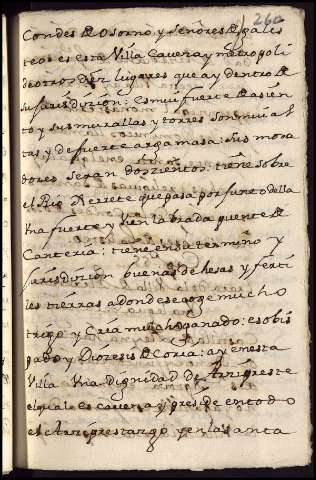 260
Condes de Osorno, y señores de galis
teo: es esta Villa Caveza y metropoli
de otros diez lugares que ay dentro de
su jurisdizion; es mui fuerte de asien
to y sus murallas y torres son mui al
tas y de fuerte argamasa: sus mora
dores seran doszientos: tiene sobre
el Rio Xerrete que pasa por junto della
Vna fuerte y bien labrada puente de
Canteria: tiene en su termino y
jurisdizion buenas dehesas y ferti
les tierras adonde se coge mucho
trigo y Cria mucho ganado: es obis
pado y Diozesis de Coria: ay en esta
Villa Vna dignidad de Arzipreste
el qual es caveza y preside en todo
el Arziprestazgo y en la santa